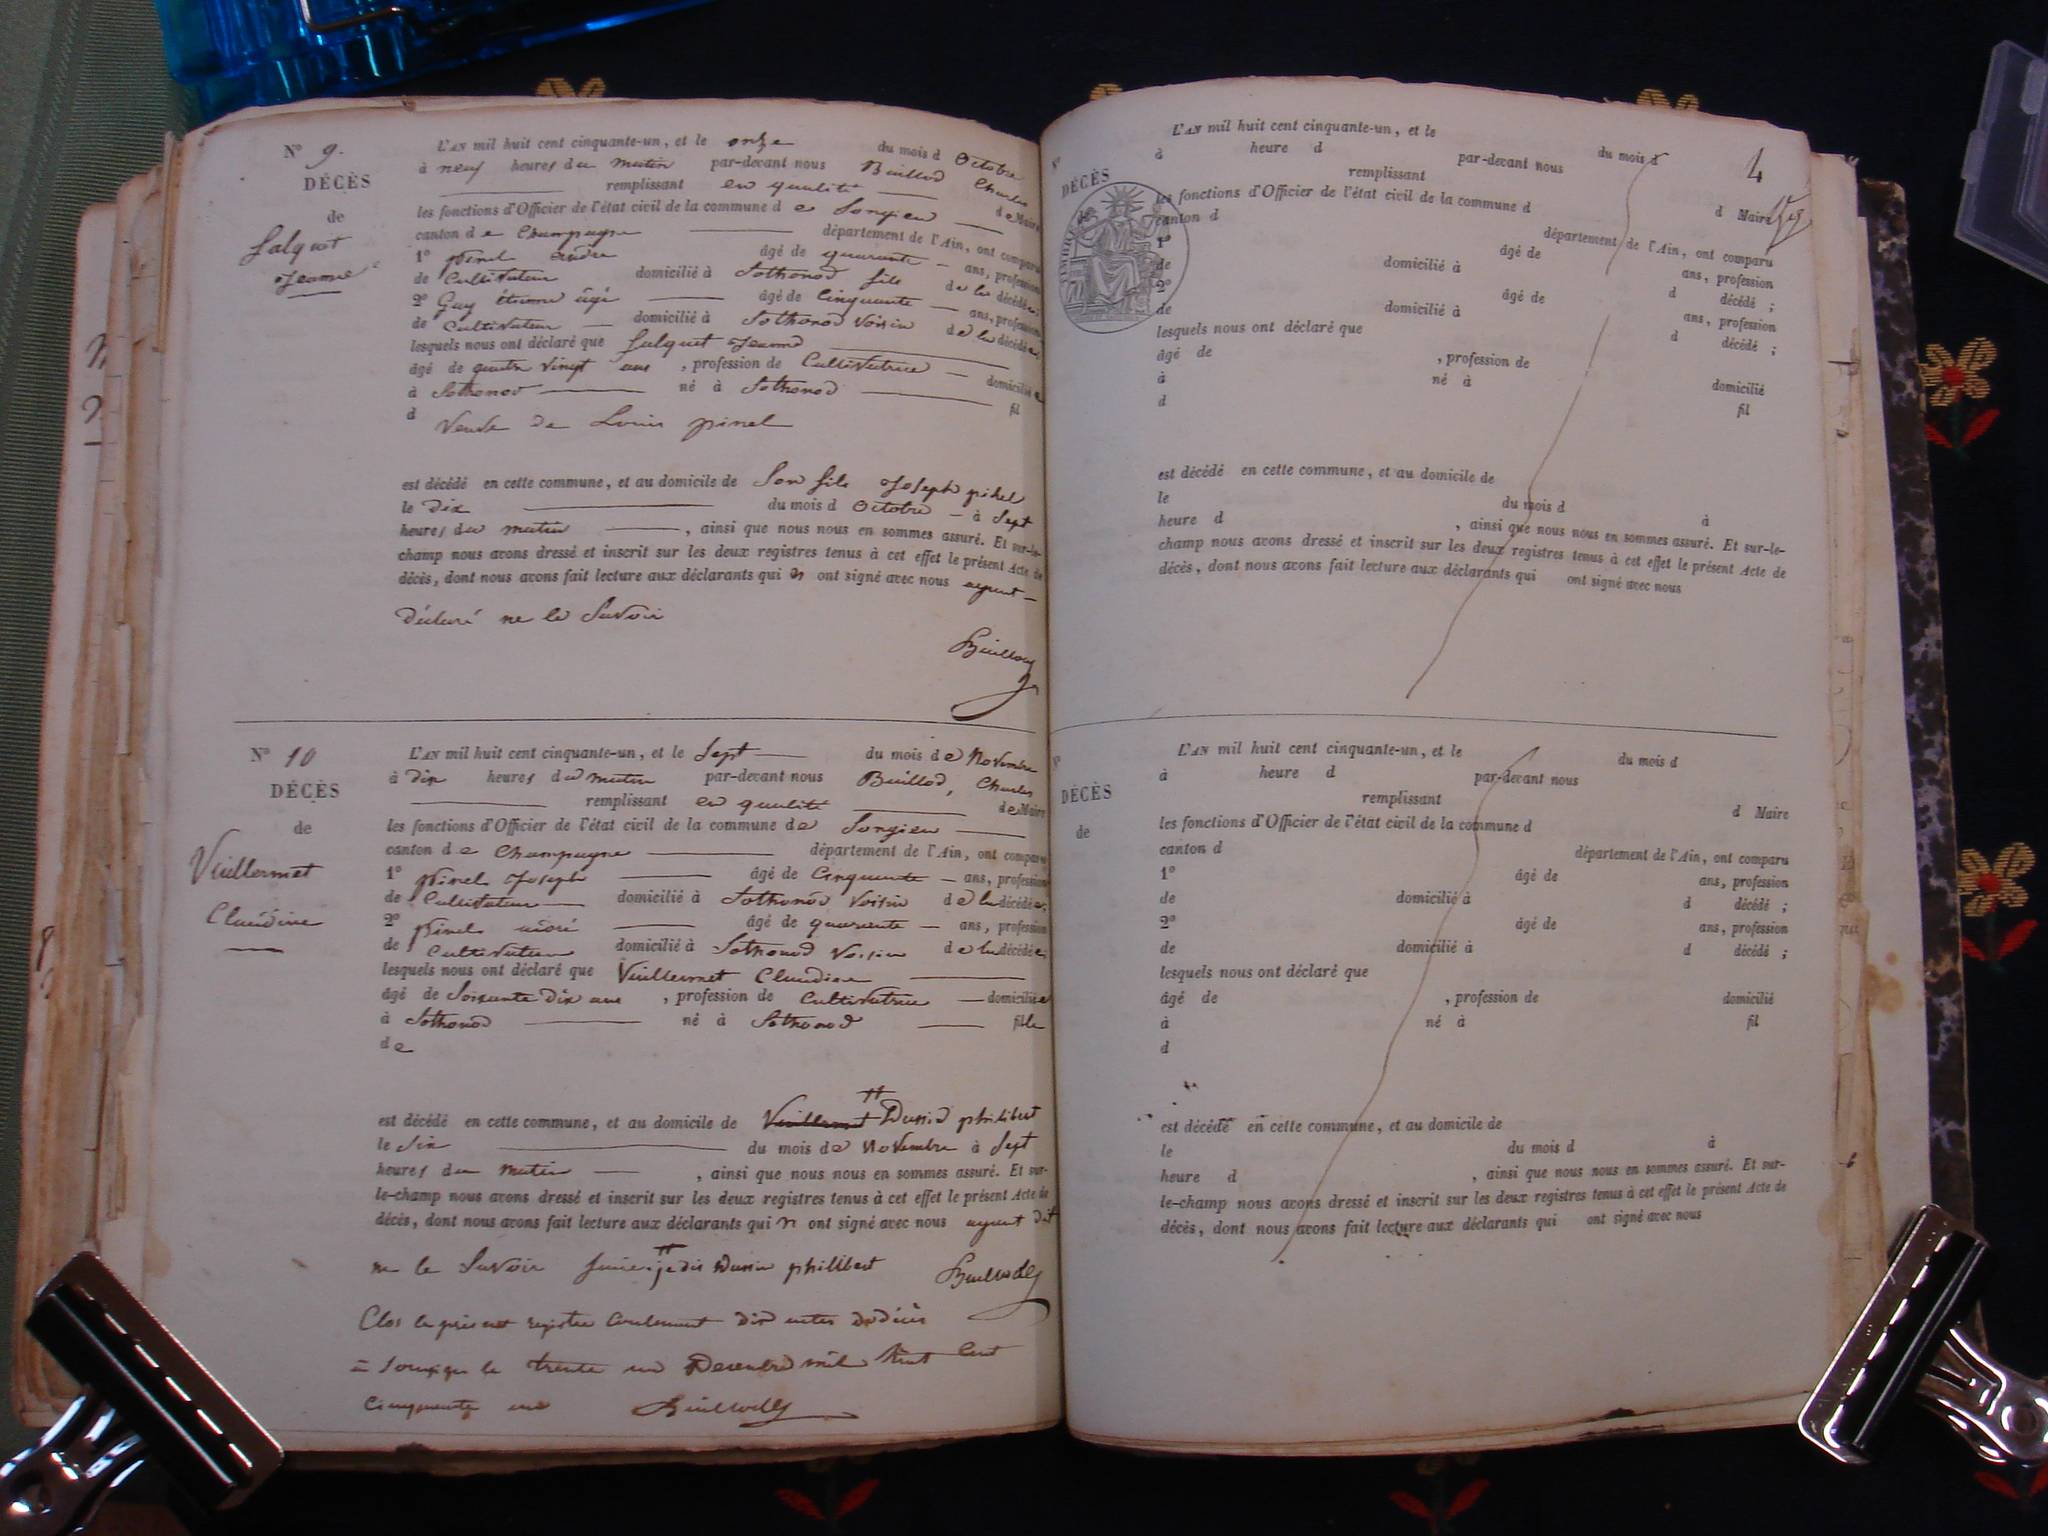 N° 9.
DÉCÈS
de
Salquet
Jeanne
L'AN mil huit cent cinquante-un, et le onze du mois d Octobre
à neuf heures du matin par-devant nous Buillod Charles
remplissant en qualité de Maire
les fonctions d'Officier de l'état civil de la commune de Songieu
canton de Champagne département de l'Ain, ont comparu
1° pinel andré âgé de quarante ans, profession
de Cultivateur domicilié à Sothonod fils de la décédée;
2° Guy étienne âgé de Cinquante ans, profession
de Cultivateur domicilié à Sothonod Voisin de la décédée
lesquels nous ont déclaré que Salquet Jeanne
âgé de quatre vingt ans, profession de Cultivatrice domiciliée
à Sothonod né à Sothonod fil
d Veuve de Louis pinel
est décédé en cette commune, et au domicile de Son fils Joseph pinel
le dix du mois d Octobre à Sept
heures du matin, ainsi que nous nous en sommes assuré. Et sur-le-
champ nous avons dressé et inscrit sur les deux registres tenus à cet effet le présent Acte de
décès, dont nous avons fait lecture aux déclarants qui n ont signé avec nous ayant
déclaré ne le Savoir
Buillod
N° 10
DÉCÈS
de
Vuillermet
Claudine
L'AN mil huit cent cinquante-un, et le Sept du mois de Novembre
à dix heures du matin par-devant nous Buillod, Charles
remplissant en qualité de Maire
les fonctions d'Officier de l'état civil de la commune de Songieu
canton de Champagne département de l'Ain, ont comparu
1° pinel Joseph âgé de Cinquante ans, profession
de Cultivateur domicilié à Sothonod Voisin de la décédée;
2° pinel andré âgé de quarante ans, profession
de Cultivateur domicilié à Sothonod Voisin de la décédée;
lesquels nous ont déclaré que Vuillermet Claudine
âgé de Soixante dix ans, profession de Cultivatrice domiciliée
à Sothonod né à Sothonod fille
de
est décédé en cette commune, et au domicile de Vuillermet philibert
le Six du mois de Novembre à Sept
heures du matin, ainsi que nous nous en sommes assuré. Et sur-
le-champ nous avons dressé et inscrit sur les deux registres tenus à cet effet le présent Acte de
décès, dont nous avons fait lecture aux déclarants qui n ont signé avec nous ayant dit
ne le Savoir philibert Buillod
Clos le présent registre Contenant dix actes de décès
à Songieu le trente un Decembre mil huit Cent
Cinquante un Buillod
4
L'AN mil huit cent cinquante-un, et le du mois d
à heure d par-devant nous
remplissant
N°
DÉCÈS
de
les fonctions d'Officier de l'état civil de la commune d d Maire
canton d département de l'Ain, ont comparu
1° âgé de ans, profession
de domicilié à d décédé ;
2° âgé de ans, profession
de domicilié à d décédé ;
lesquels nous ont déclaré que
âgé de , profession de domicilié
à né à fil
d
est décédé en cette commune, et au domicile de
le du mois d à
heure d , ainsi que nous nous en sommes assuré. Et sur-le-
champ nous avons dressé et inscrit sur les deux registres tenus à cet effet le présent Acte de
décès, dont nous avons fait lecture aux déclarants qui ont signé avec nous
N°
DÉCÈS
de
L'AN mil huit cent cinquante-un, et le du mois d
à heure d par-devant nous
remplissant d Maire
les fonctions d'Officier de l'état civil de la commune d
canton d département de l'Ain, ont comparu
1° âgé de ans, profession
de domicilié à d décédé ;
2° âgé de ans, profession
de domicilié à d décédé ;
lesquels nous ont déclaré que
âgé de , profession de domicilié
à né à fil
d
est décédé en cette commune, et au domicile de
le du mois d à
heure d , ainsi que nous nous en sommes assuré. Et sur-
le-champ nous avons dressé et inscrit sur les deux registres tenus à cet effet le présent Acte de
décès, dont nous avons fait lecture aux déclarants qui ont signé avec nous